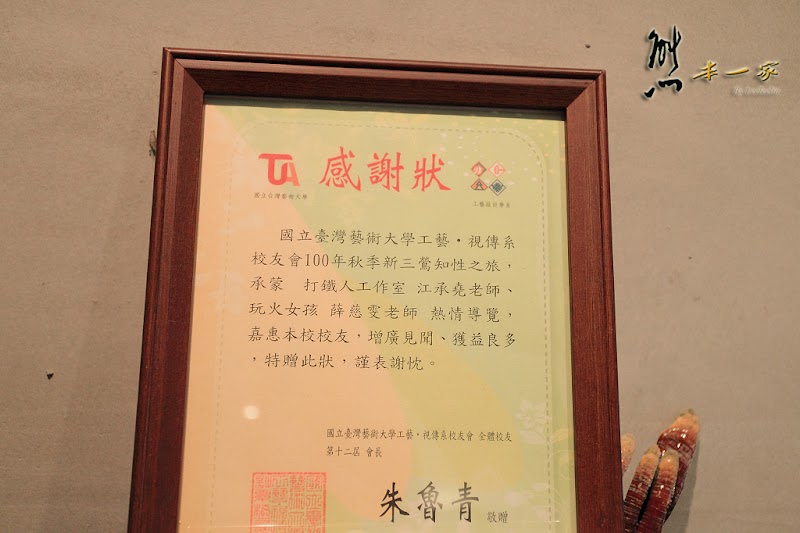 熊本一家
感謝狀
國立台灣藝術大學
工藝設計學系
國立臺灣藝術大學工藝・視傳系
校友會100年秋季新三鶯知性之旅，
承蒙 打鐵人工作室 江承堯老師、
玩火女孩 薛慈雯老師 熱情導覽，
嘉惠本校校友，增廣見聞、獲益良多
，特贈此狀，謹表謝忱。
國立臺灣藝術大學工藝・視傳系校友會 全體校友
第十二屆 會長
朱魯青 敬贈